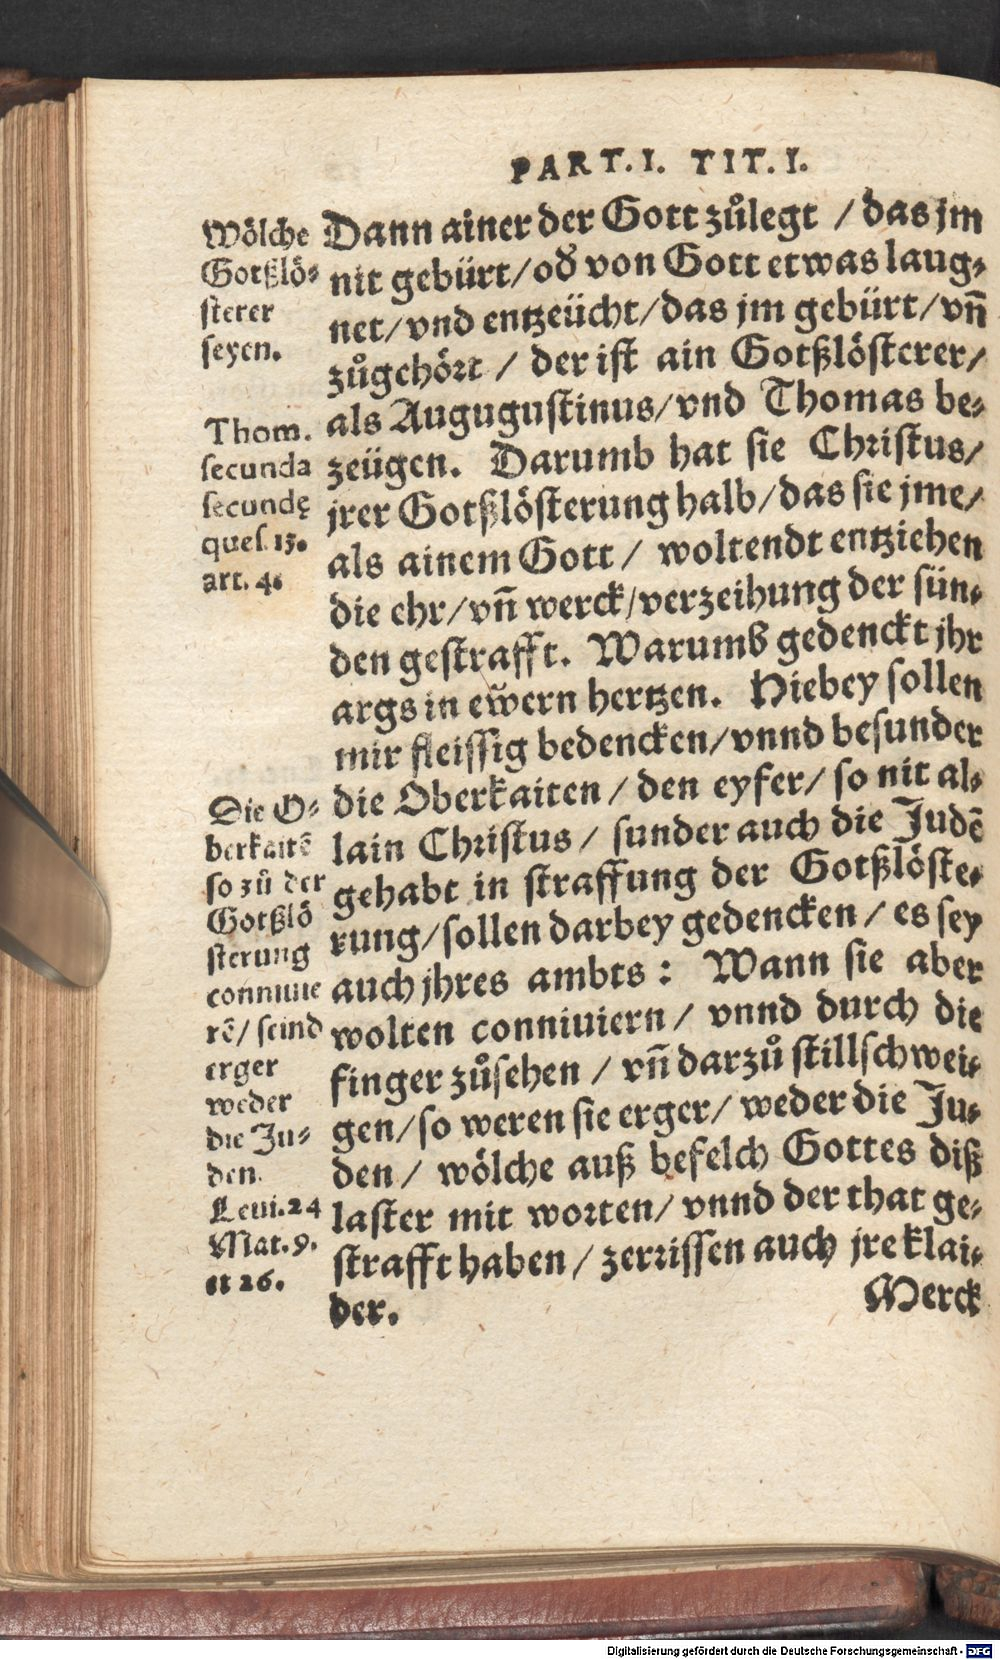 PART. I. TIT. I.
Wölche
Gotßlö-
sterer
seyen.
Thom.
secunda
secundę
ques. 13.
art. 4.
Die O-
berkaitẽ
so zů der
Gotßlö
sterung
conniuie
rẽ/ seind
erger
weder
die Ju-
den.
Leui. 24
Mat. 9.
et 26.
Dann ainer der Gott zůlegt / das jm
nit gebürt/ od̕ von Gott etwas laug-
net/ vnd entzeücht/ das jm gebürt/ vn̄
zůgehört / der ist ain Gotßlösterer/
als Augugustinus/ vnd Thomas be-
zeügen. Darumb hat sie Christus/
jrer Gotßlösterung halb/ das sie jme/
als ainem Gott / woltendt entziehen
die ehr/ vn̄ werck/ verzeihung der sün-
den gestrafft. Warumb gedenckt jhr
args in ew̃ern hertzen. Hiebey sollen
mir fleissig bedencken/ vnnd besunder
die Oberkaiten / den eyfer/ so nit al-
lain Christus / sunder auch die Judẽ
gehabt in straffung der Gotßlöste-
rung/ sollen darbey gedencken / es sey
auch jhres ambts : Wann sie aber
wolten conniuiern / vnnd durch die
finger zůsehen / vn̄ darzů stillschwei-
gen/ so weren sie erger/ weder die Ju-
den / wölche auß befelch Gottes diß
laster mit worten/ vnnd der that ge-
strafft haben / zerrissen auch jre klai-
der.
Merck
Digitalisierung gefördert durch die Deutsche Forschungsgemeinschaft - DFG